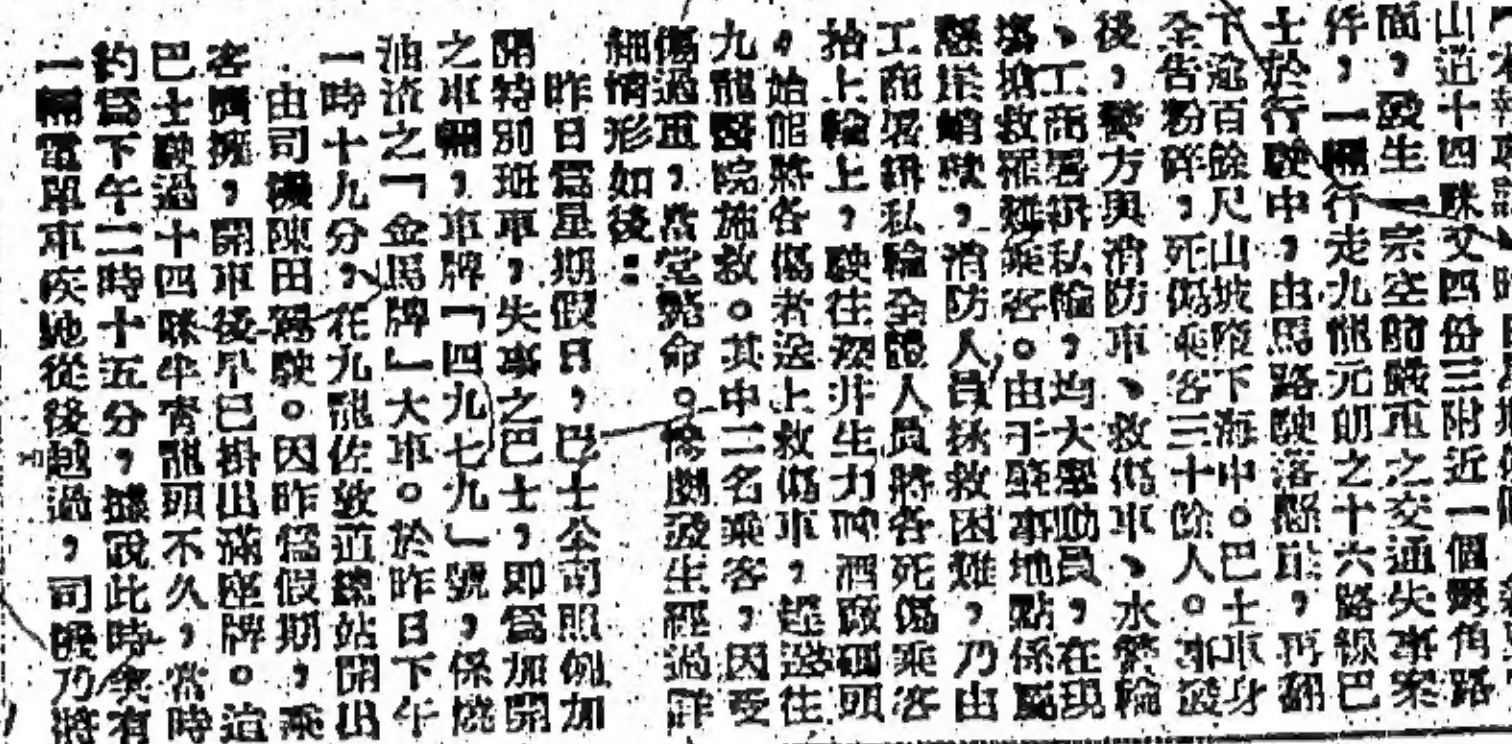 山道十四咪又四份三附近一個彎角路
面，發生一宗空前嚴重之交通失事案
件，一輛行走九龍元朗之十六路線巴
士於行駛中，由馬路駛落懸崖，再翻
下逾百餘尺山坡墮下海中。巴士車身
全告粉碎，死傷乘客三十餘人。事發
後，警方與消防車、救傷車、水警輪
、工商署緝私輪，均大舉動員，在現
場搶救罹難乘客。由于肇事地點係屬
懸崖峭壁，消防人員拯救困難，乃由
工商署緝私輪全體人員將各死傷乘客
抬上輪上，駛往深井生力啤酒廠碼頭
，始能將各傷者送上救傷車，逕送往
九龍醫院施救。其中二名乘客，因受
傷過重，當堂斃命。慘劇發生經過詳
細情形如後：
昨日為星期假日，巴士公司照例加
開特別班車，失事之巴士，即為加開
之車輛，車牌「四九七九」號，係燒
油渣之「金馬牌」大車。於昨日下午
一時十九分，在九龍佐敦道總站開出
由司機陳田駕駛。因昨為假期，乘
客擠擁，開車後早已掛出滿座牌。這
巴士駛過十四咪半青龍頭不久，當時
約為下午二時十五分，據說此時突有
一輛電單車疾馳從後越過，司機乃將